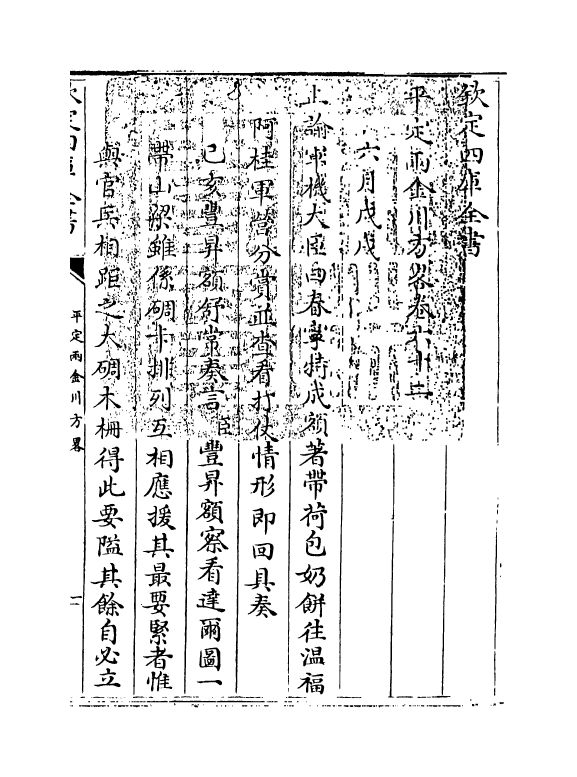 欽定四庫全書
平定兩金川方畧卷六十二
六月戊戌
上諭軍機大臣曰春寧持成額著帶荷包奶餅往温福
阿桂軍營分賞並查看打仗情形即回具奏
己亥豐昇額舒常奏言臣豐昇額察看達爾圖一
帶山梁雖係碉卡排列互相應援其最要緊者惟
與官兵相距之大碉木柵得此要隘其餘自必立
欽定四庫全書
平定兩金川方畧
一